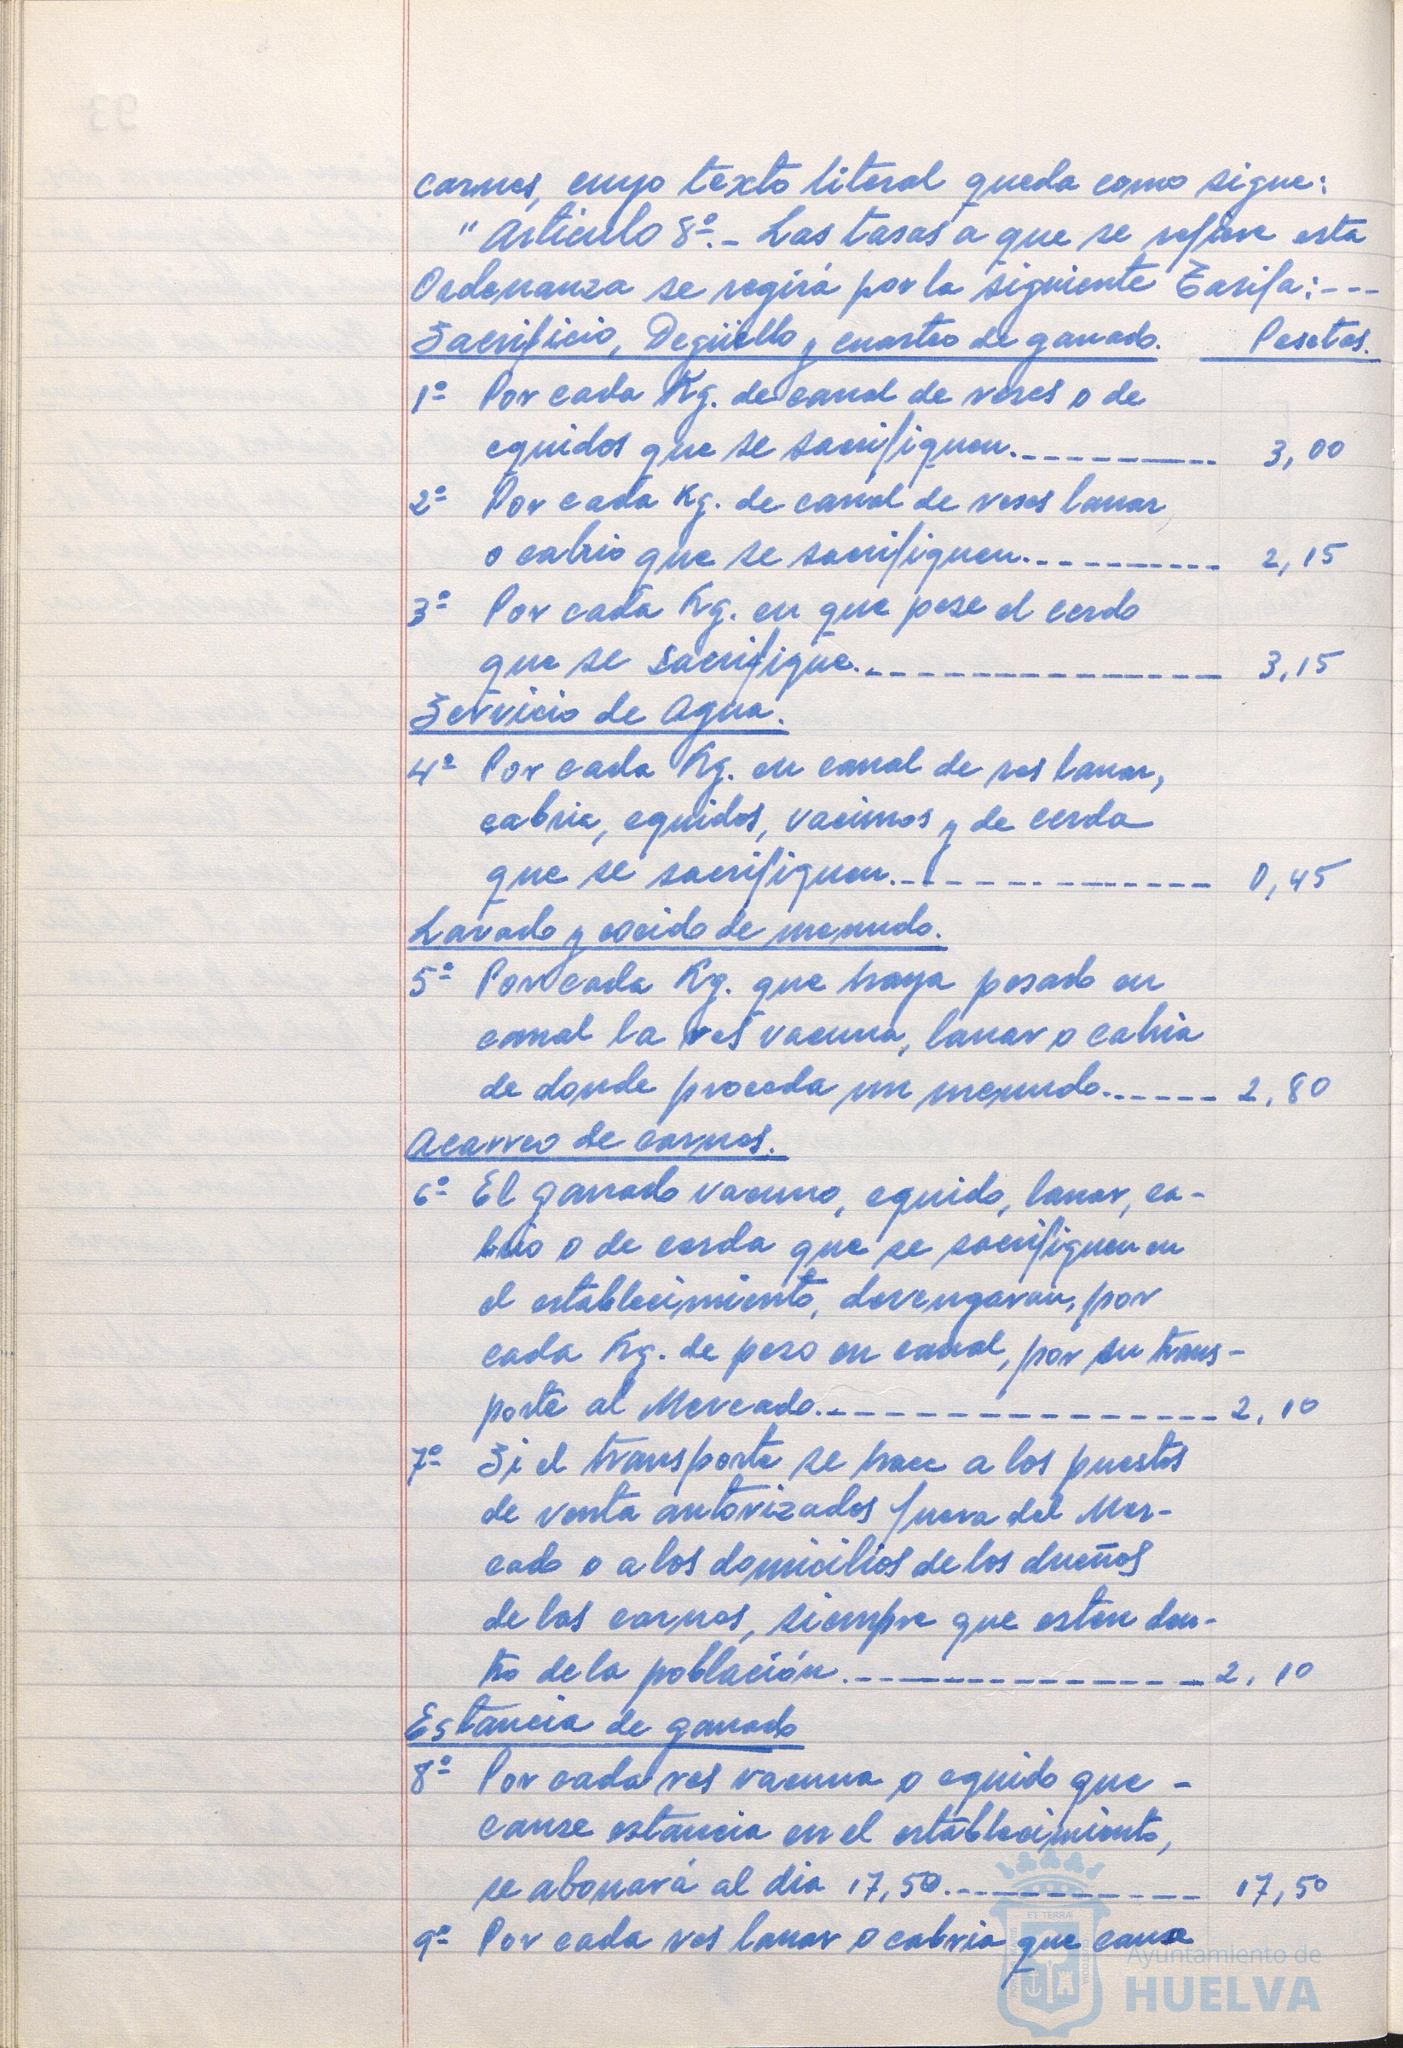 carnes, cuyo texto literal queda como sigue:
"Artículo 8º.- Las tasas a que se refiere esta
Ordenanza se regirá por la siguiente Tarifa:---
Sacrificio, Degüello y cuarteo de ganado. Pesetas.
1º Por cada Kg. de canal de reses o de
equidos que se sacrifiquen. 3,00
2º Por cada Kg. de canal de reses lanar
o cabrio que se sacrifiquen. 2,15
3º Por cada Kg. en que pese el cerdo
que se sacrifique. 3,15
Servicio de Agua.
4º Por cada Kg. en canal de res lanar,
cabria, equidos, vacunos y de cerda
que se sacrifiquen. 0,45
Lavado y cocido de menudo.
5º Por cada Kg. que haya pesado en
canal la res vacuna, lanar o cabria
de donde proceda un menudo. 2,80
Acarreo de carnes.
6º El ganado vacuno, equido, lanar, ca-
brio o de cerda que se sacrifiquen en
el establecimiento, devengaran, por
cada Kg. de peso en canal, por su trans-
porte al Mercado. 2,10
7º Si el transporte se hace a los puestos
de venta autorizados fuera del Mer-
cado o a los domicilios de los dueños
de las carnes, siempre que esten den-
tro de la población. 2,10
Estancia de ganado
8º Por cada res vacuna o equido que -
cause estancia en el establecimiento,
se abonará al dia 17,50. 17,50
9º Por cada res lanar o cabria que cause
Ayuntamiento de
HUELVA